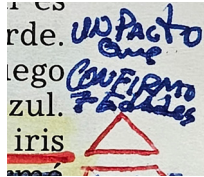 ar es
rde.
uego
zul.
iris
UN PACTO
Que
CONFIRMO
7 Edades